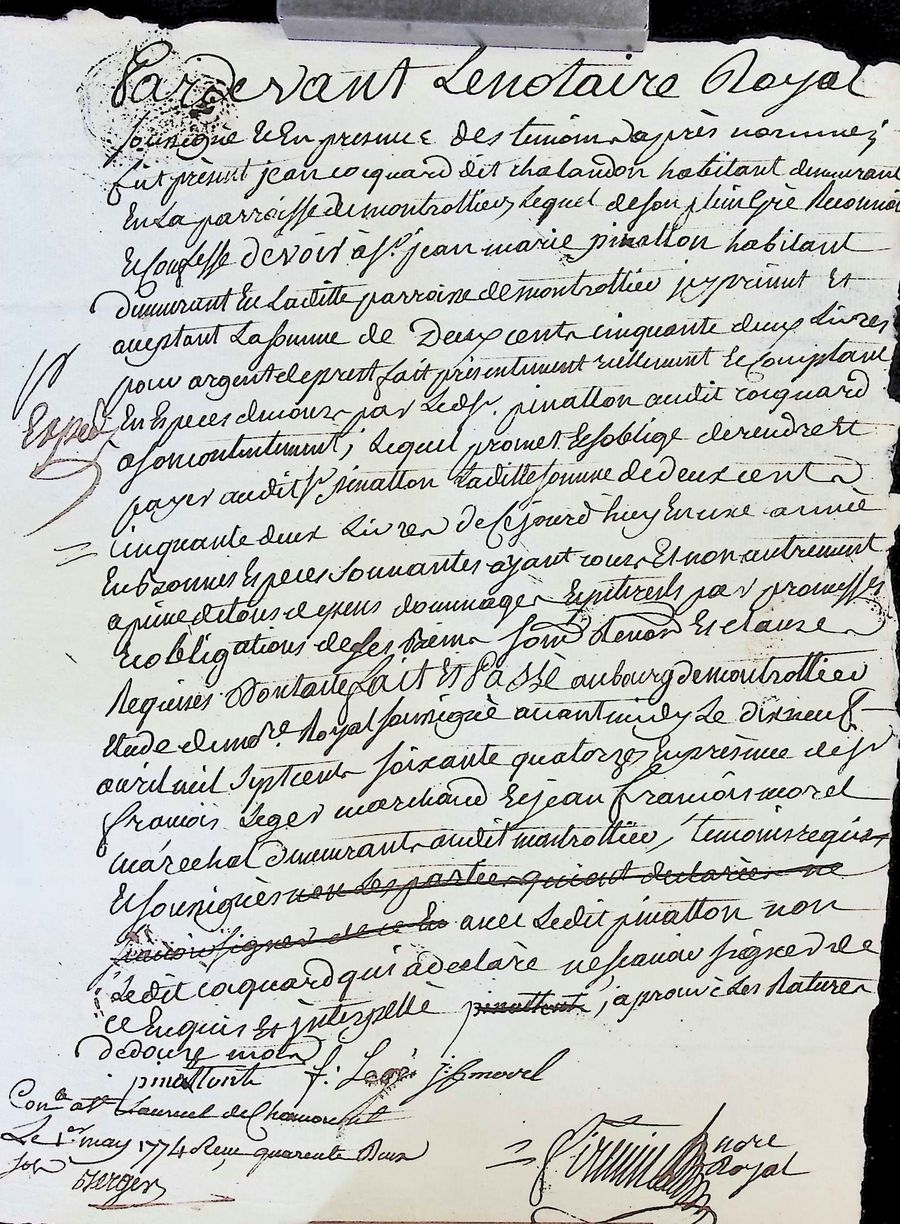 Pardevant Lenotaire Royal
soussigné Et En presence des temoins apres nommés
fut présent jean cocquard dit chalandon habitant demeurant
En La parroisse de montrottier, Lequel de son plein Gré Reconnoi
Et Confesse devoir à sr. jean marie pinatton habitant
demeurant En Laditte parroisse de montrottier jcy présent Et
aceptant La somme de Deux cents cinquante deux Livres
pour argent de prest fait présentement réellement Et Comptant
Exped
En Especes de cours par Ledt. sr. pinatton audit cocquard
a son contentement, Lequel promet Et s'oblige de rendre Et
payer audit sr pinatton Laditte somme de deux cents
cinquante deux Livres de Cejourd'huy En une année
En bonnes Especes sonnantes ayant cours Et non autrement
a peine de tous depens dommages Et jnterests par promesses
Et obligations de ses Biens soum. Renon. Et clauses
Requises Dont acte fait Et Passé au bourg de montrottier
Etude du nore. Royal soussigné avant midy Le dixneuf
avril mil Sept cents soixante quatorze En presence de sr
françois Leger marchand Et jean françois morel
maréchal demeurants audit montrottier, temoins requis
Et soussignés non Les parties qui ont declarées ne
scavoir signer de ce En avec Ledit pinatton non
Ledit cocquard qui a declaré ne scavoir signer de
ce Enquis Et jnterpellé pinatton, japrouve Les Ratures
de douze mots
pinattont f. Leger j: f morel
Conlé. a st Laurent de Chamousset
Le 1er may 1774 Reçu quarente Deux
sols
Berger
nore
Royal